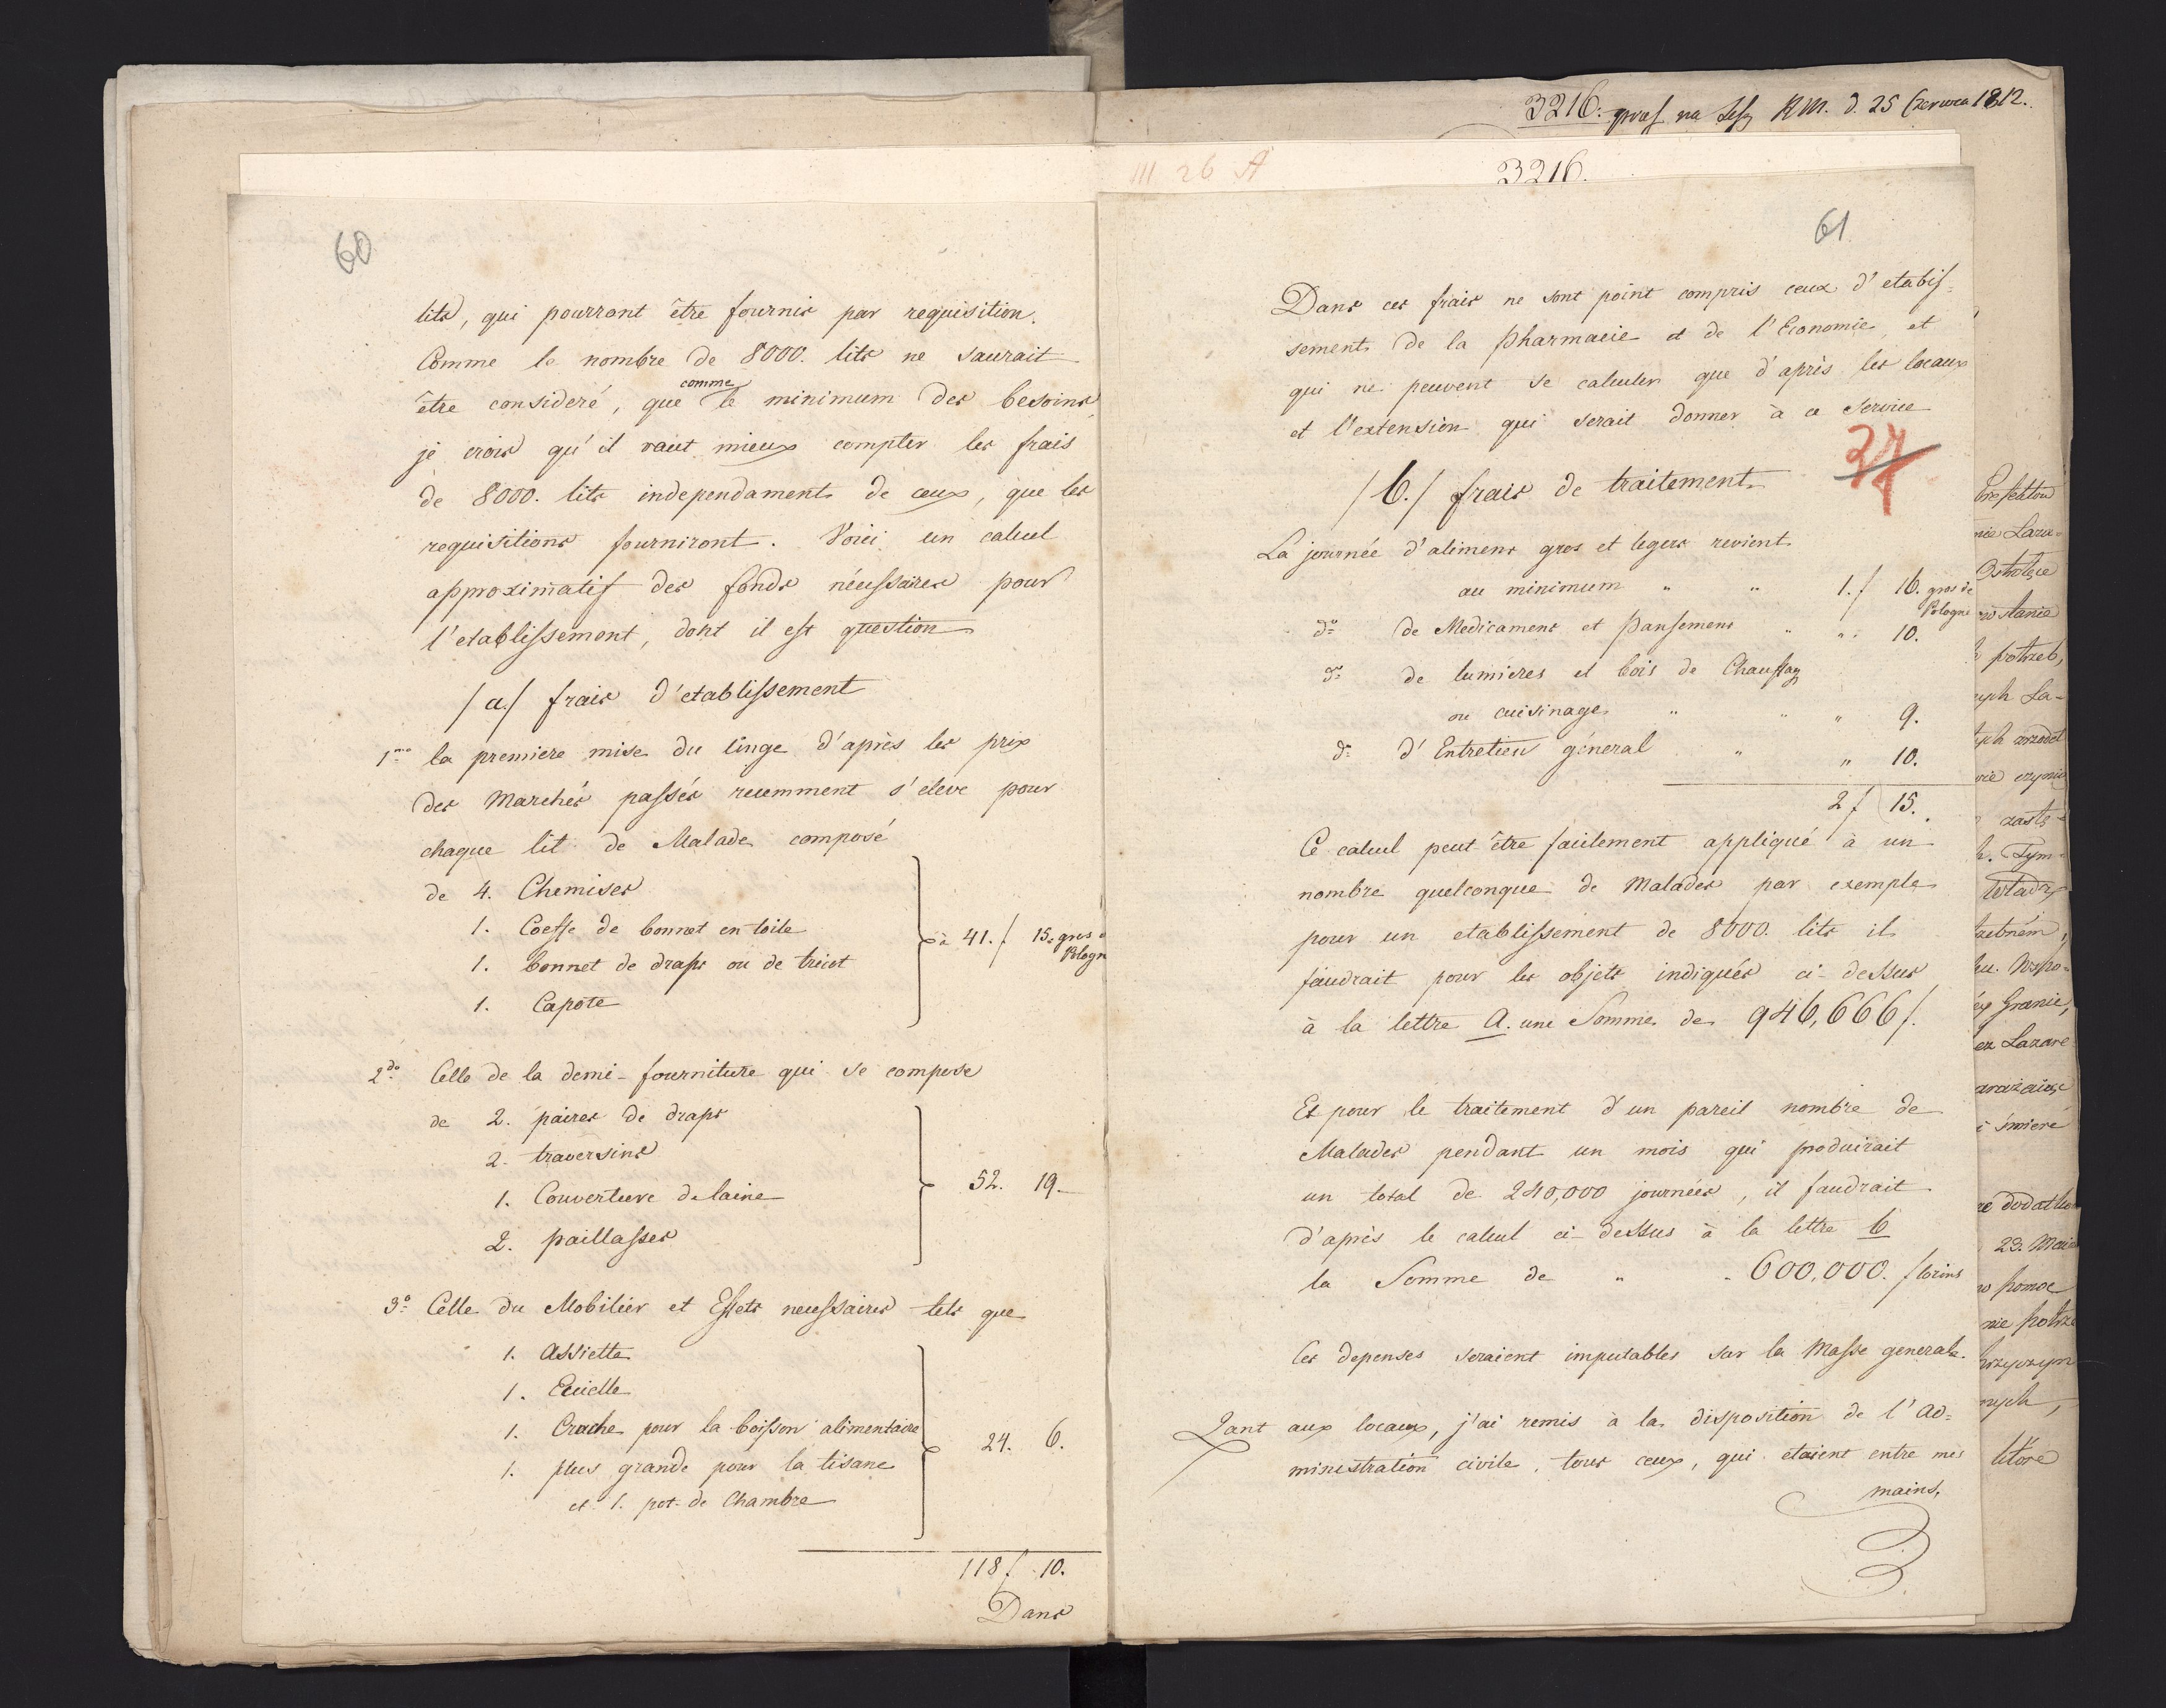 60
lits, qui pourront être fournis par requisition.
Comme le nombre de 8000. lits ne saurait
être consideré, que comme le minimum des besoins,
je crois qu'il vaut mieux compter les frais
de 8000. lits independament de ceux, que les
requisitions fourniront. Voici un calcul
approximatif des fonds nécessaires pour
l'etablissement, dont il est question
/a/ frais d'etablissement
1mo la premiere mise du linge d'après les prix
des Marchés passés recemment s'eleve pour
chaque lit de Malade composé
de 4. Chemises
1. Coeffe de bonnet en toile
à 41. f 15. gros
Pologn
1. bonnet de draps ou de tricot
1. Capote
2do Celle de la demi-fourniture qui se compose
de 2. paires de draps
2. traversins
1. Couverture de laine 52. 19.
2. paillasses
3o Celle du Mobilier et Effets necessaires tels que
1. Assiette
1. Ecuelle
1. Cruche pour la boisson alimentaire
24. 6.
1. plus grande pour la tisane
et 1. pot de Chambre
118 f 10.
Dans
3216. na Ses RM. d. 25 Czerwca 1812.
III 26 A
3216.
61
Dans ces frais ne sont point compris ceux d'etablis=
sement de la Pharmacie et de l'Economie, et
qui ne peuvent se calculer que d'après les locaux
et l'extension qui serait donner à ce service
27
/b./ frais de traitement
La journée d'alimens gros et legers revient
au minimum " " 1. f 16. gros de
Pologne
do de Medicamens et Pansemens " " 10.
do de lumieres et bois de Chauffag
ou cuisinage " " " 9.
do d'Entretien géneral " " 10.
2 f 15.
Ce calcul peut être facilement appliqué à un
nombre quelconque de Malades par exemple
pour un etablissement de 8000. lits il
faudrait pour les objets indiqués ci-dessus
à la lettre a. une Somme de 946,666 f.
Et pour le traitement d'un pareil nombre de
Malades pendant un mois qui produirait
un total de 240,000 journées, il faudrait
d'après le calcul ci-dessus à la lettre b
la Somme de " " 600,000. florins
Ces depenses seraient imputables sur la Masse generale.
Qant aux locaux, j'ai remis à la disposition de l'Ad=
ministration civile, tous ceux, qui etaient entre mes
mains,
nie Lazu=
Ostrolęce
potrzeb,
ych La=
zastę=
h. Tym=
Władz
Granic,
dodatko
23. Maia
pomoc
nych,
które